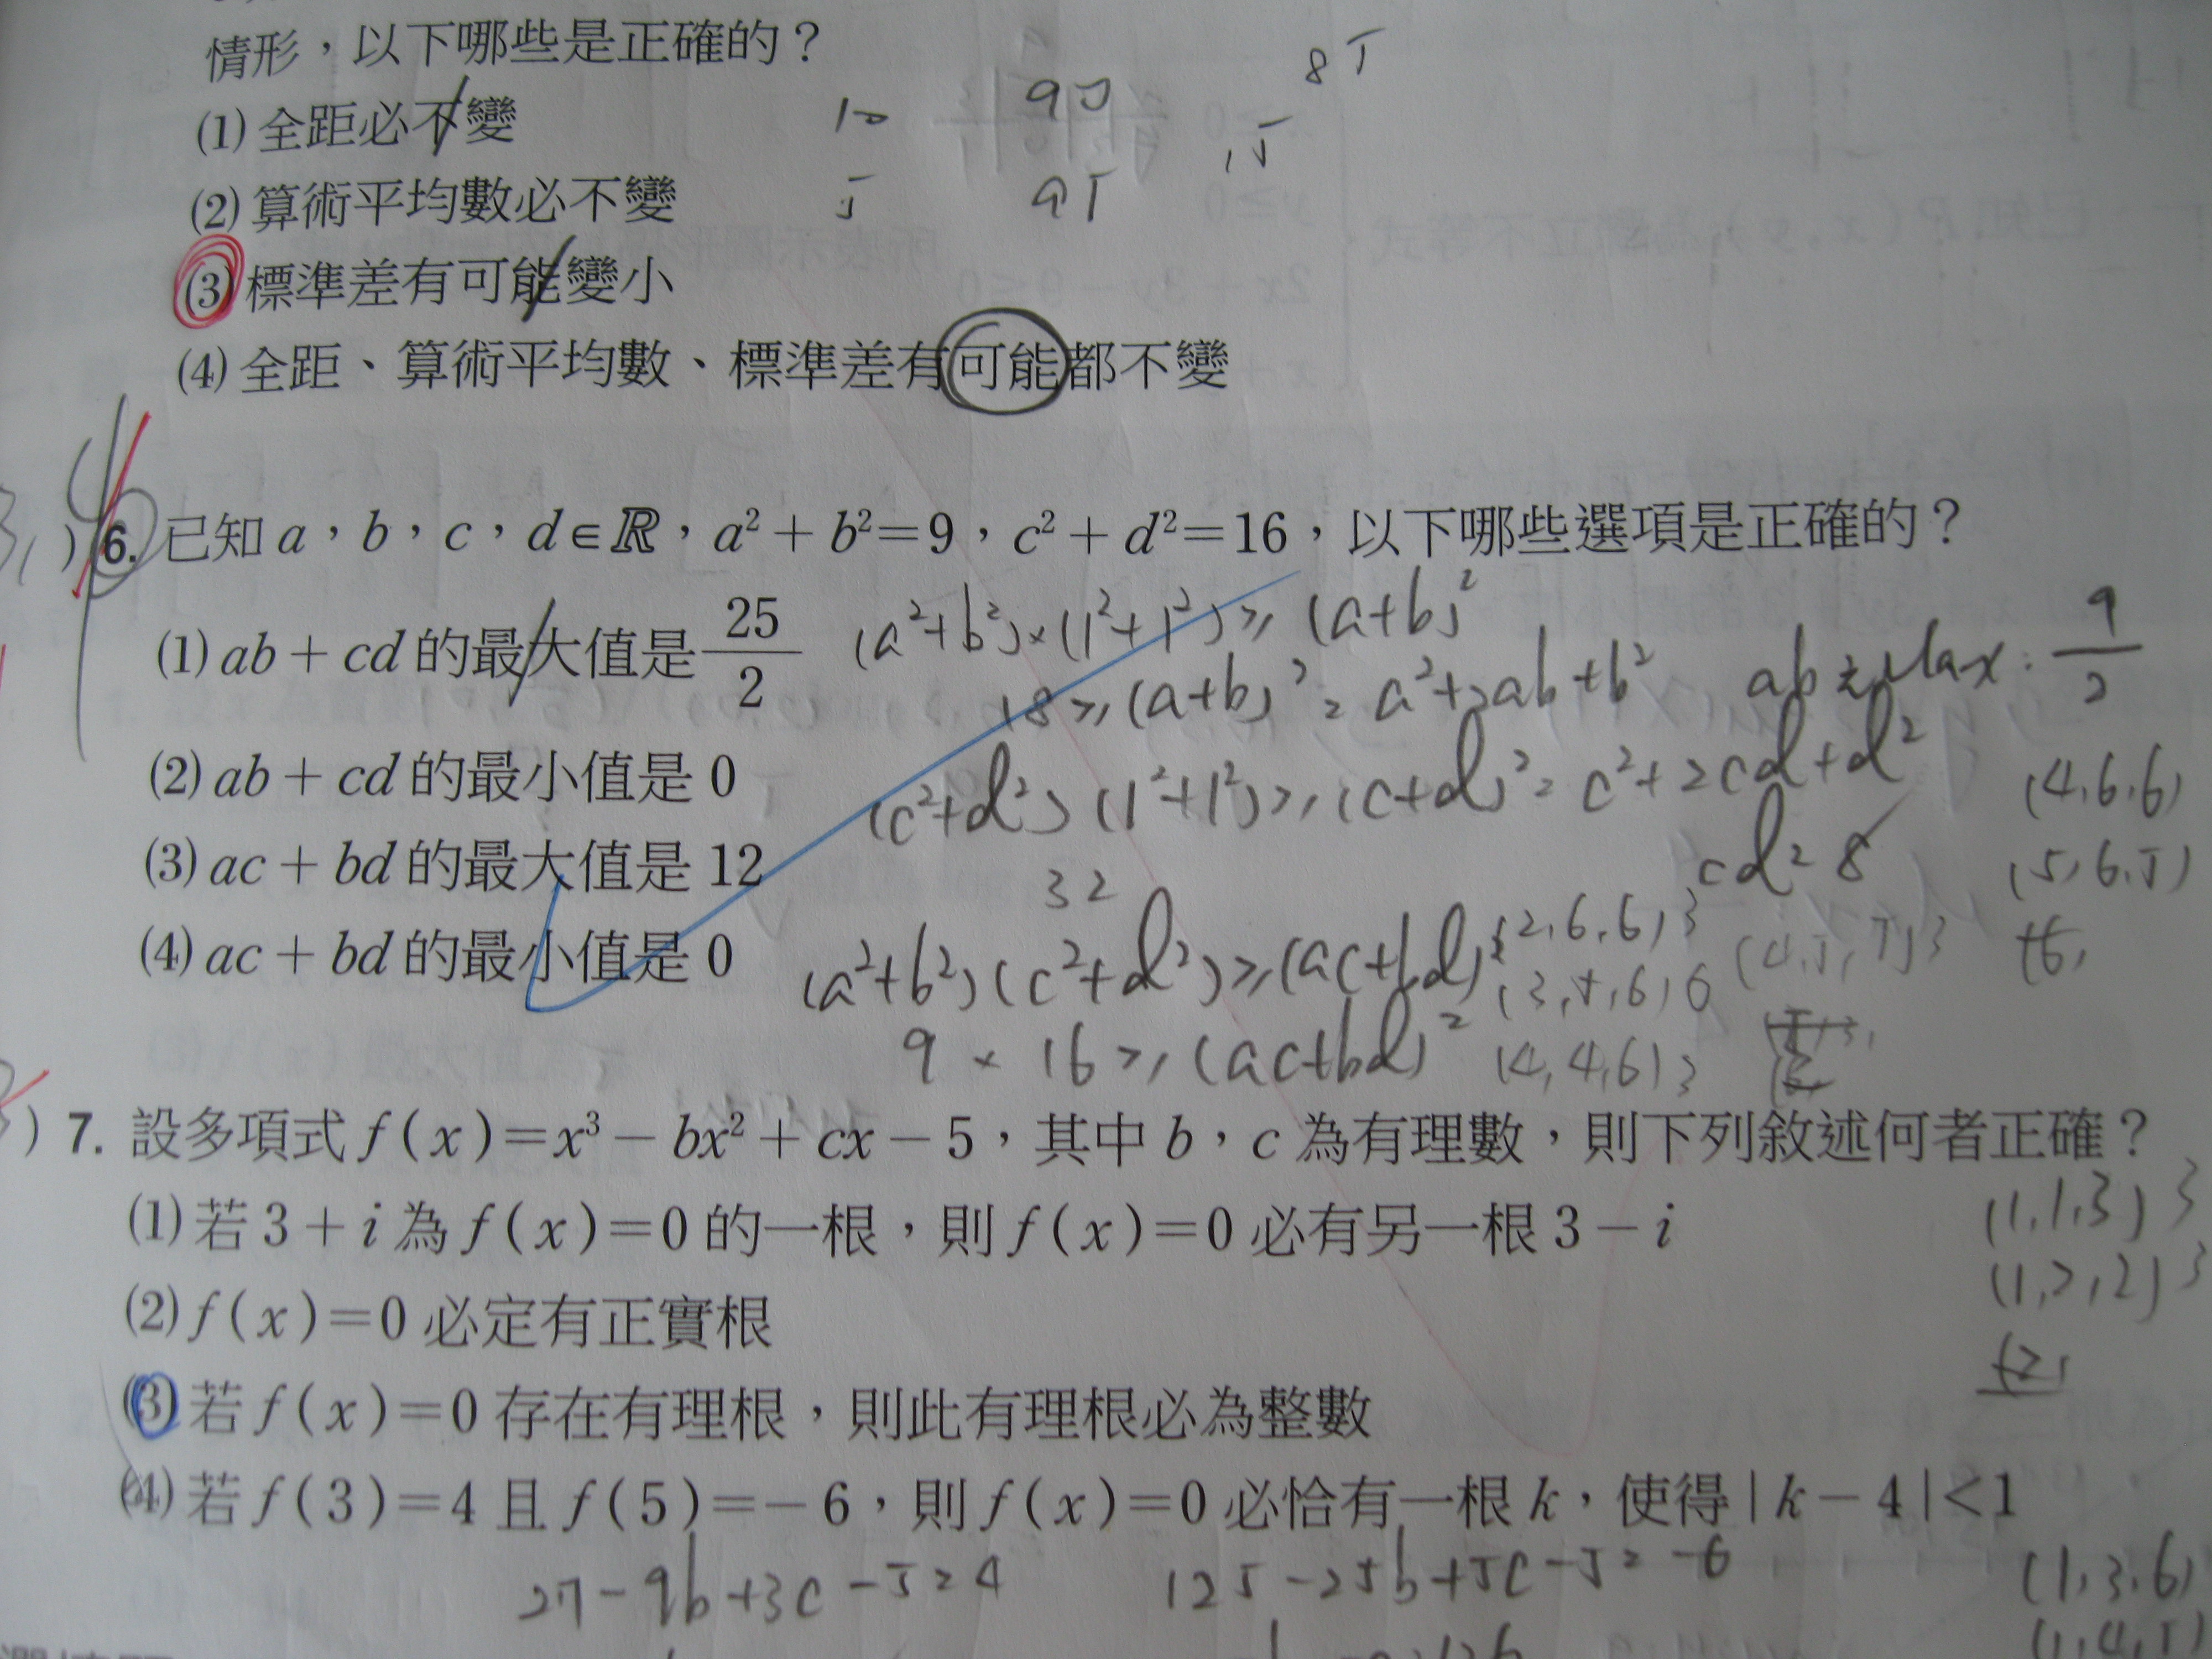 情形，以下哪些是正確的？
(1) 全距必不變
(2) 算術平均數必不變
(3) 標準差有可能變小
(4) 全距、算術平均數、標準差有可能都不變
10 90 85
5 95 15
) 6. 已知 a，b，c，d∈ℝ，a²＋b²＝9，c²＋d²＝16，以下哪些選項是正確的？
(1) ab＋cd 的最大值是 25/2
(a²+b²)×(1²+1²)≥(a+b)²
18≥(a+b)²=a²+2ab+b² ab Max: 9/2
(2) ab＋cd 的最小值是 0
(c²+d²)(1²+1²)≥(c+d)²=c²+2cd+d²
(4,6,6)
cd=8
(5,6,5)
(3) ac＋bd 的最大值是 12
32
(4) ac＋bd 的最小值是 0
(a²+b²)(c²+d²)≥(ac+bd)²
(2,6,6)3
(4,5,5)3
(6,
(3,5,6)6
9×16≥(ac+bd)²
(4,4,6)3
) 7. 設多項式 f(x)＝x³－bx²＋cx－5，其中 b，c 為有理數，則下列敘述何者正確？
(1) 若 3＋i 為 f(x)＝0 的一根，則 f(x)＝0 必有另一根 3－i
(1,1,3)3
(2) f(x)＝0 必定有正實根
(1,2,2)3
(2,
(3) 若 f(x)＝0 存在有理根，則此有理根必為整數
(4) 若 f(3)＝4 且 f(5)＝－6，則 f(x)＝0 必恰有一根 k，使得 |k－4|＜1
27-9b+3c-5=4 125-25b+5c-5=-6
(1,3,6)
(1,4,5)